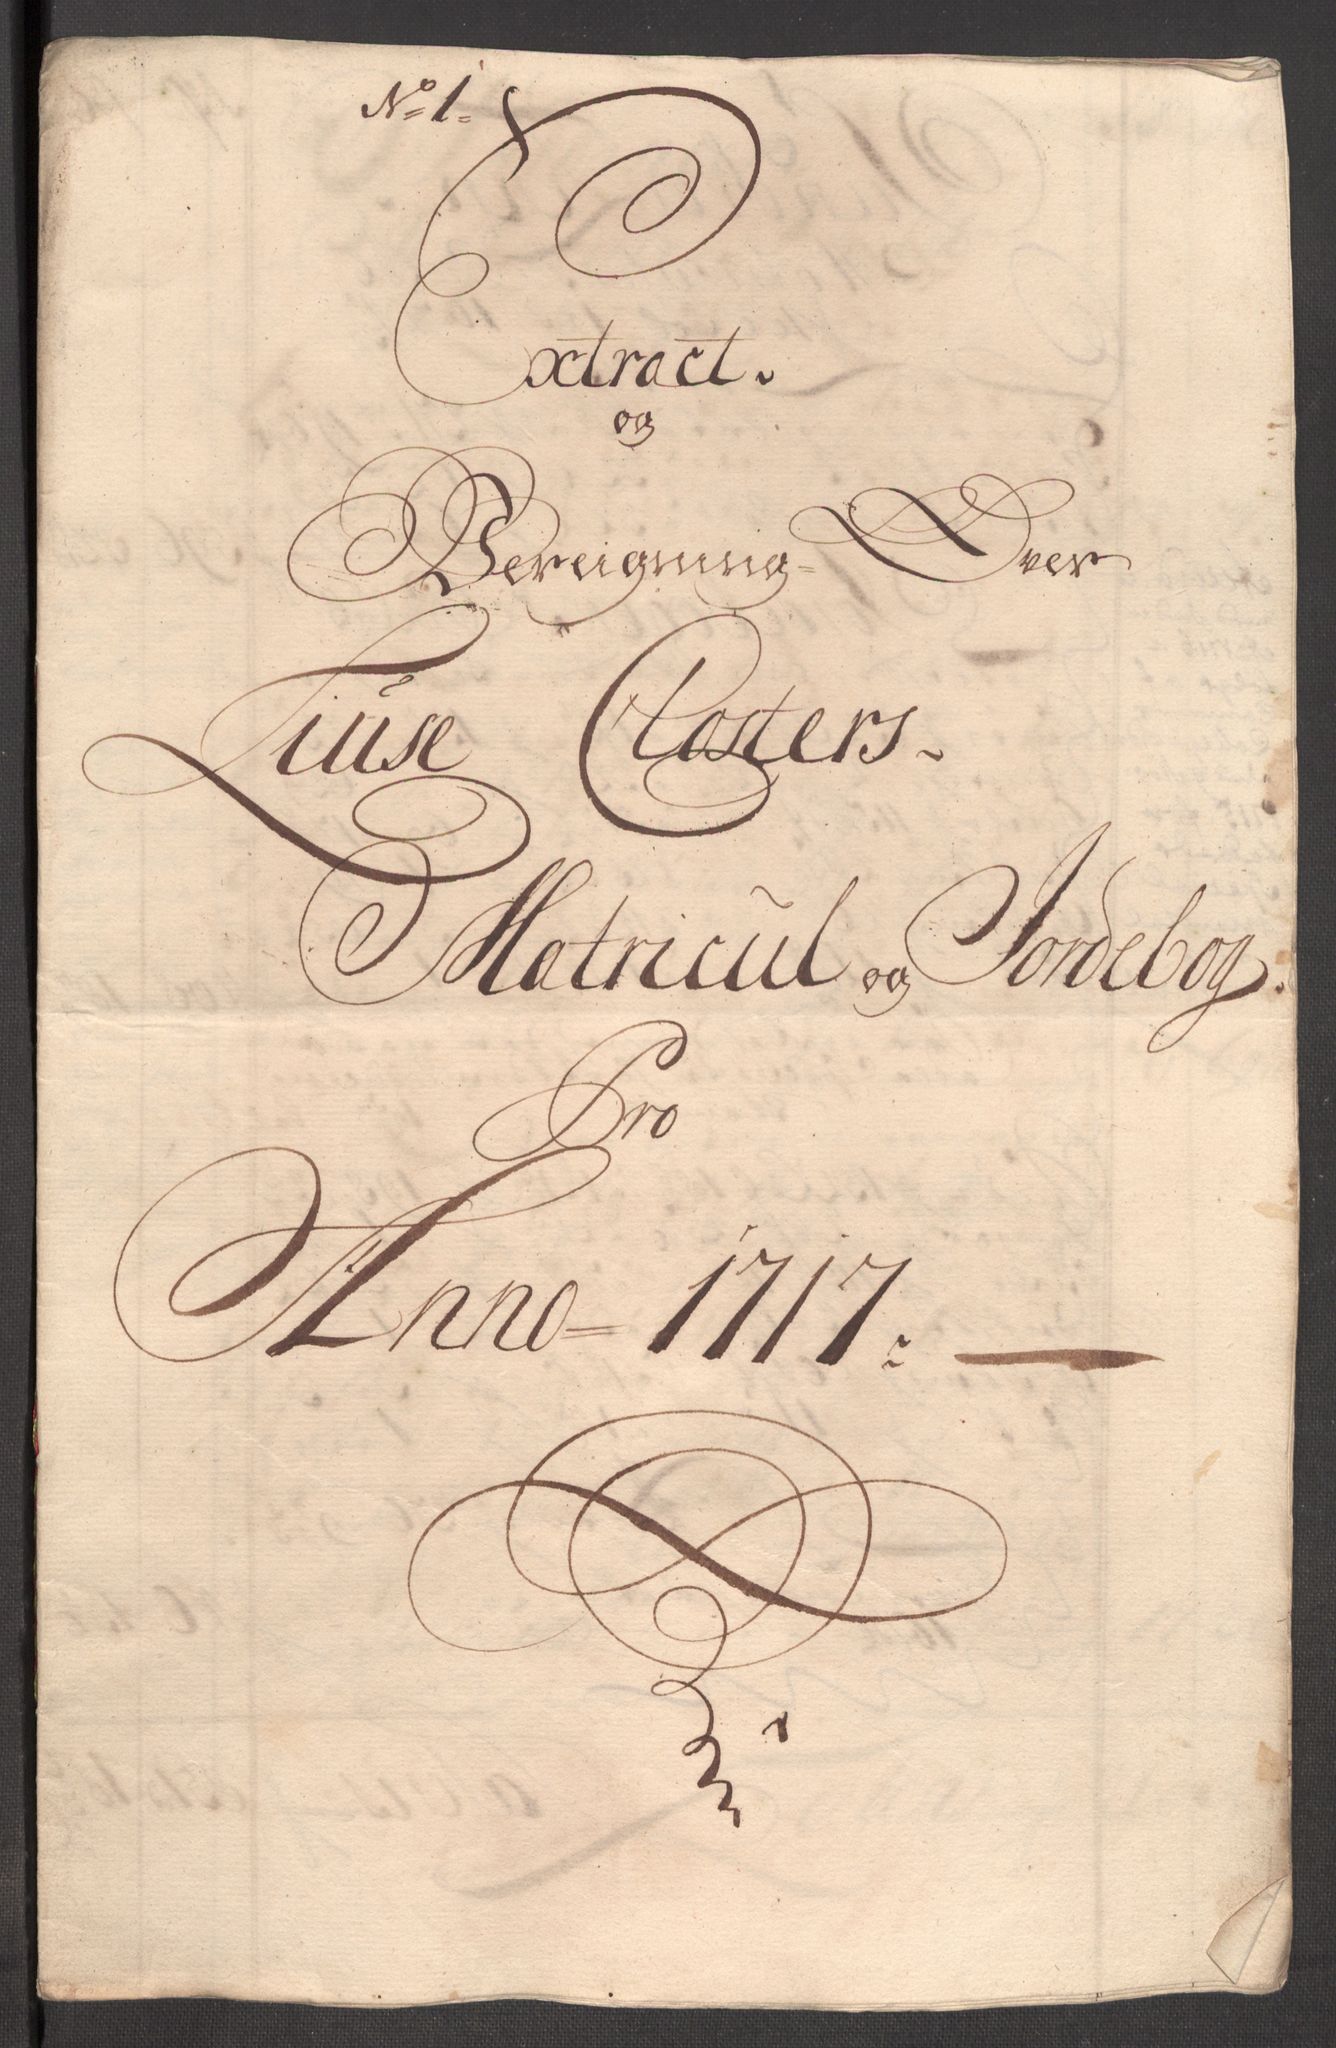 No 1.
Extract.
og
Bereigning Over
Liuse Closters.
Matricul og Jordebog.
Pro
Anno 1717.